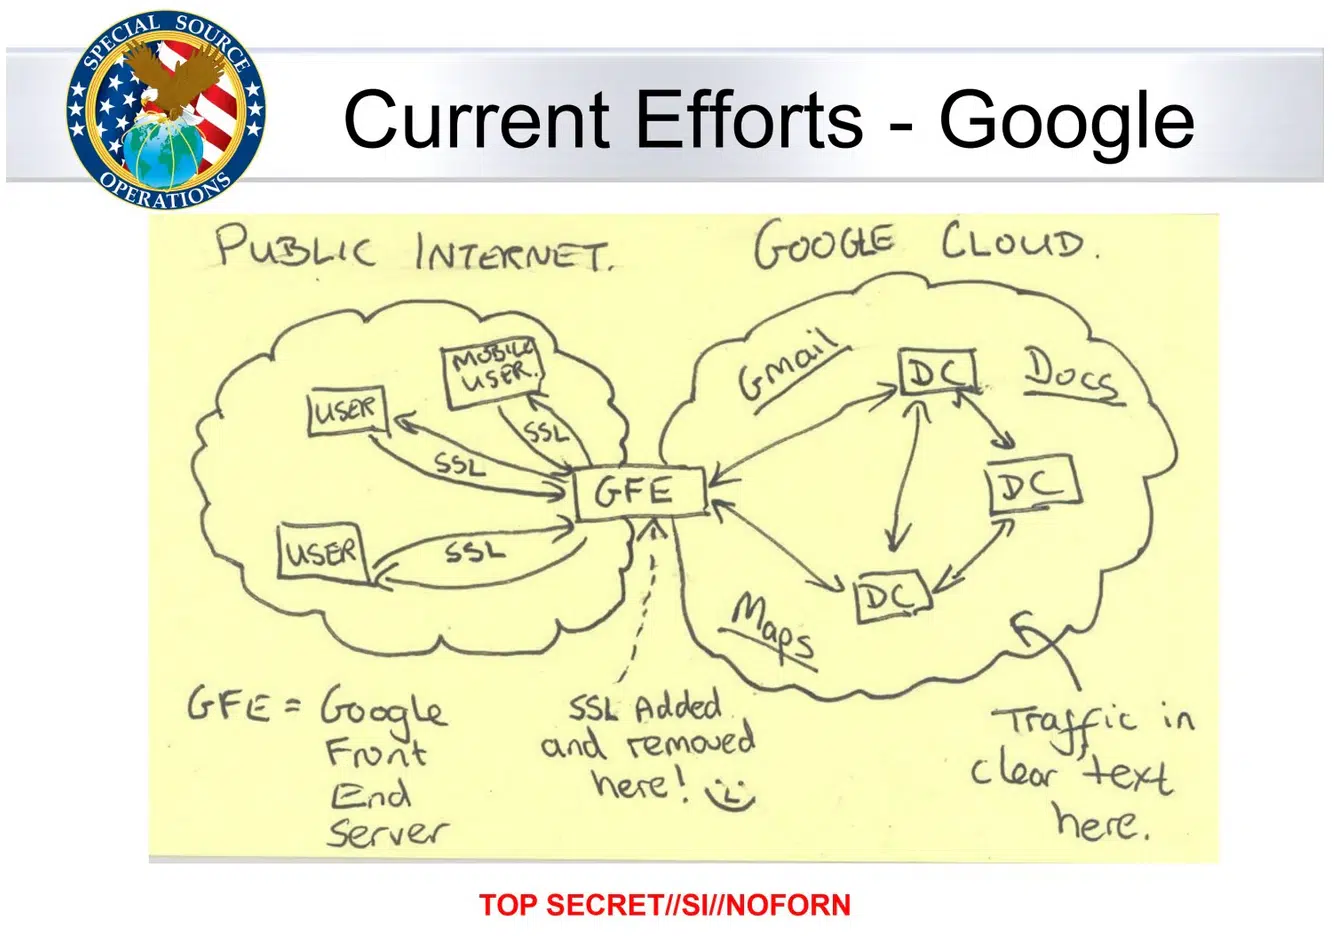 SPECIAL SOURCE
OPERATIONS
Current Efforts - Google
PUBLIC INTERNET.
GOOGLE CLOUD.
MOBILE
USER.
USER
SSL
SSL
USER
SSL
GFE
Gmail
DC
Docs
DC
DC
Maps
GFE = Google
Front
End
Server
SSL Added
and removed
here!
Traffic in
clear text
here.
TOP SECRET//SI//NOFORN